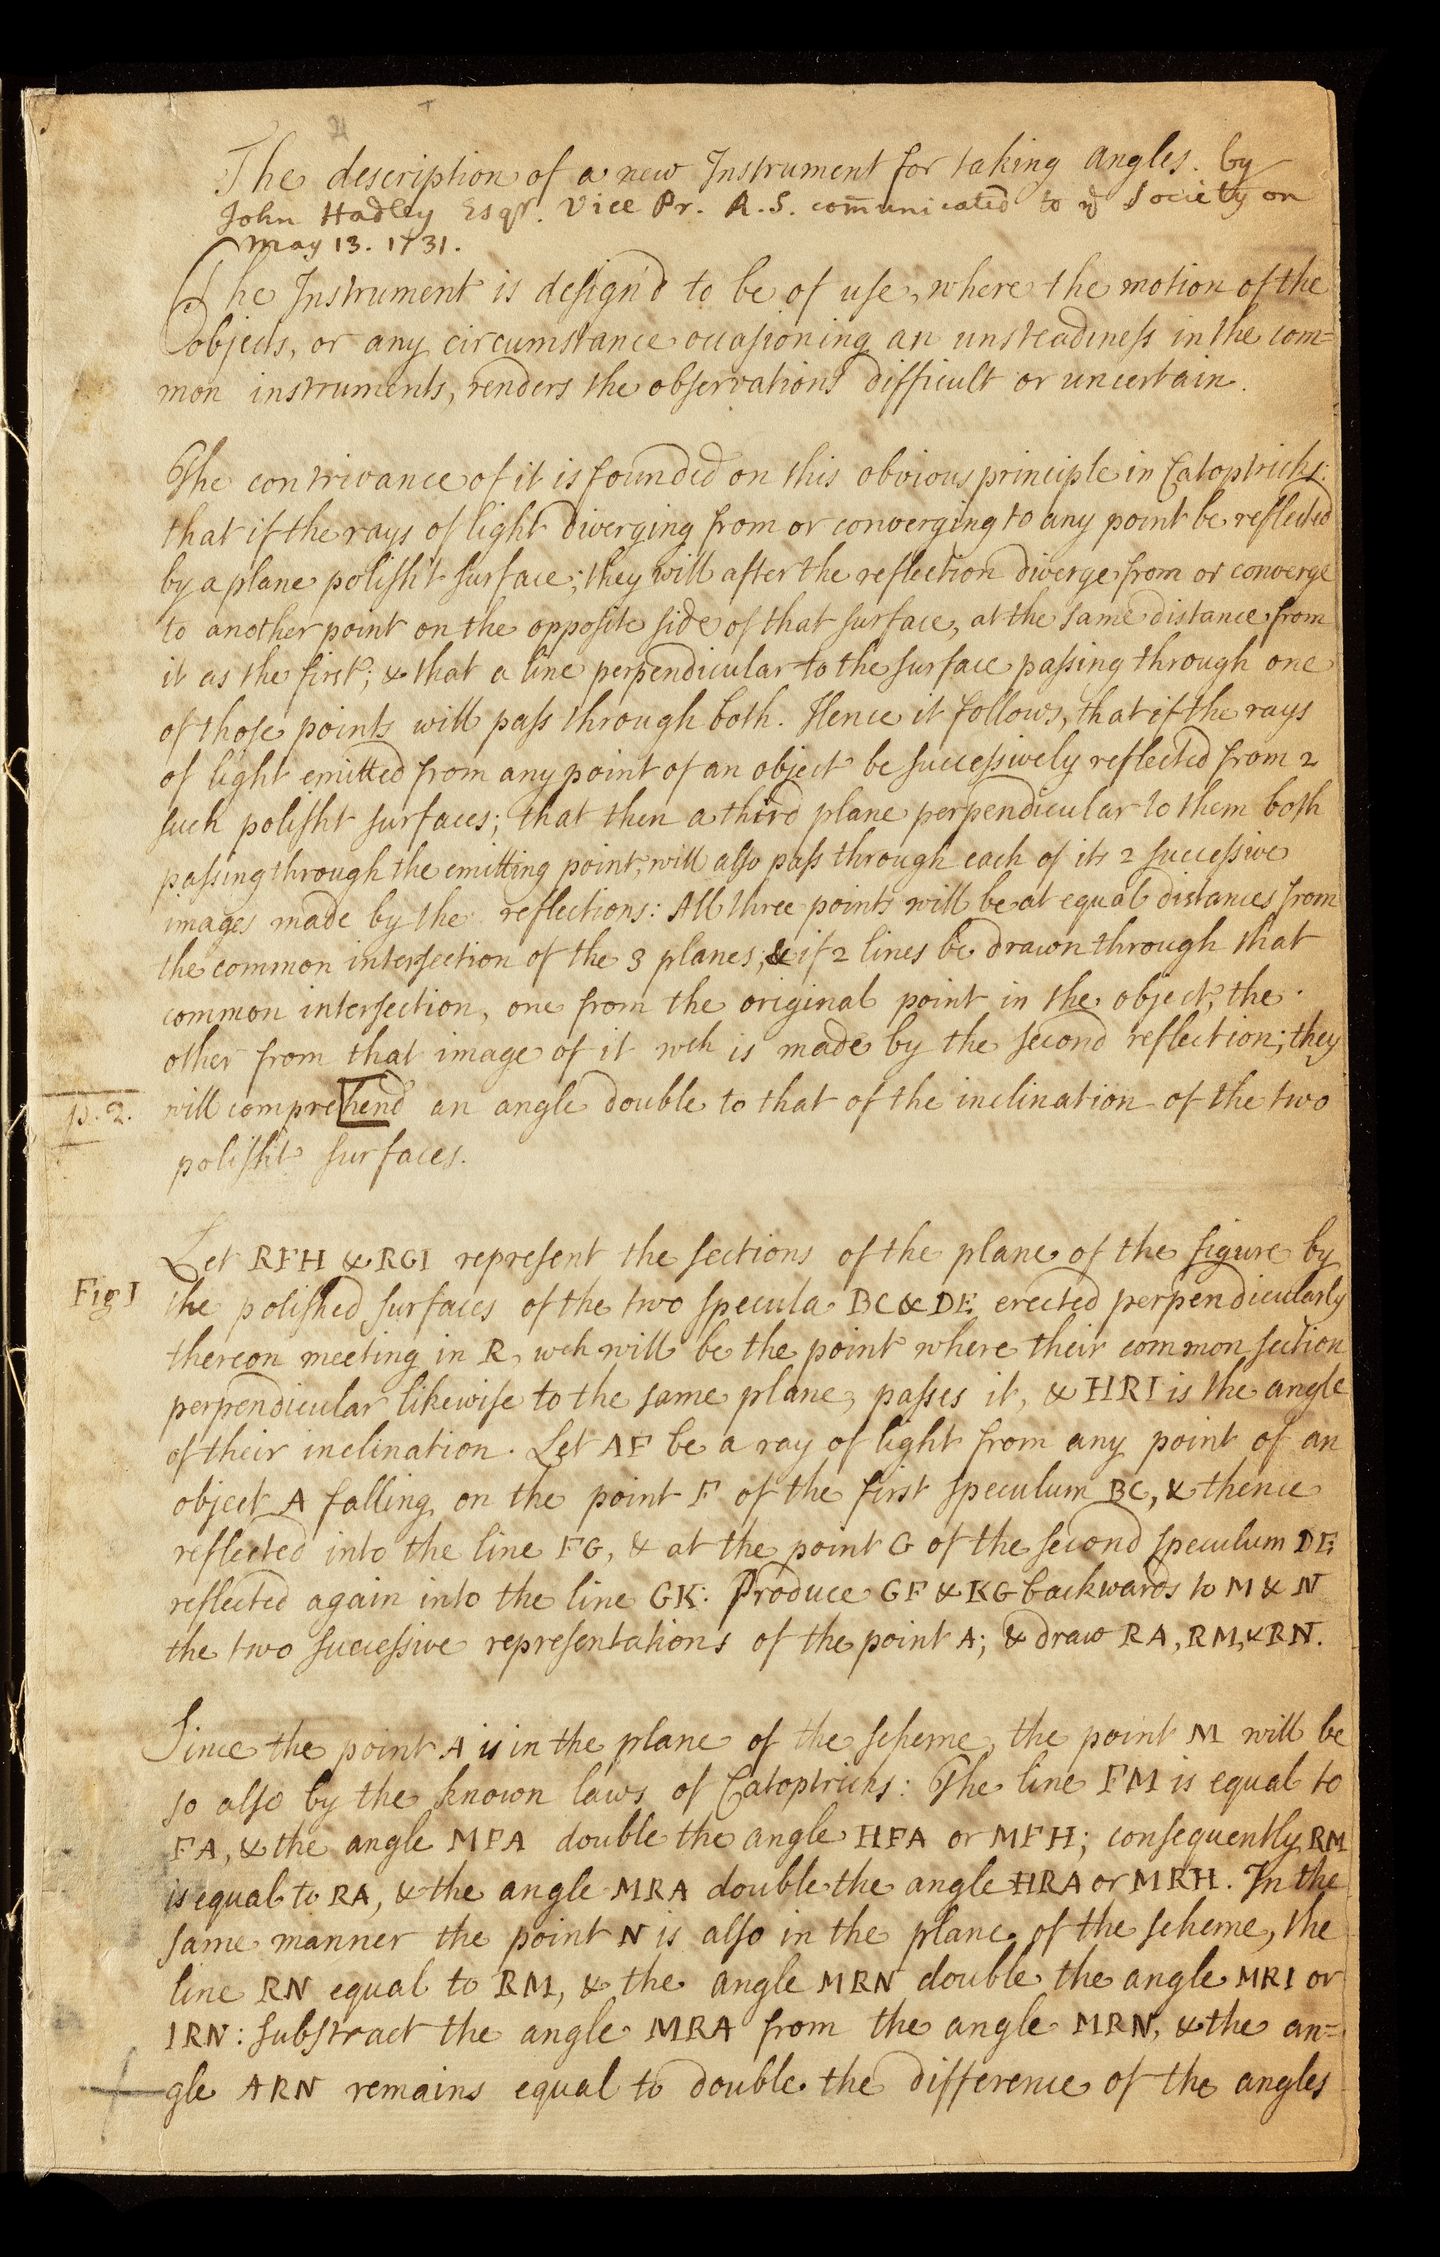 The description of a new Instrument for taking angles. by
John Hadley Esqr. Vice Pr. R.S. com̅unicated to ye Society on
May 13. 1731.
The Instrument is design'd to be of use, where the motion of the
objects, or any circumstance occasioning an unsteadiness in the com=
mon instruments, renders the observations difficult or uncertain.
The contrivance of it is founded on this obvious principle in Catoptricks:
that if the rays of light diverging from or converging to any point be reflected
by a plane polisht surface; they will after the reflection diverge from or converge
to another point on the opposite side of that surface, at the same distance from
it as the first; & that a line perpendicular to the surface passing through one
of those points will pass through both. Hence it follows, that if the rays
of light emitted from any point of an object be successively reflected from 2
such polisht surfaces; that then a third plane perpendicular to them both
passing through the emitting point, will also pass through each of its 2 successive
images made by the reflections: All three points will be at equal distances from
the common intersection of the 3 planes; & if 2 lines be drawn through that
common intersection, one from the original point in the object, the
other from that image of it wch is made by the second reflection; they
p. 2. will comprehend an angle double to that of the inclination of the two
polisht surfaces.
Let RFH & RGI represent the sections of the plane of the figure by
Fig I the polished surfaces of the two specula BC & DE erected perpendicularly
thereon meeting in R, wch will be the point where their common section
perpendicular likewise to the same plane, passes it, & HRI is the angle
of their inclination. Let AF be a ray of light from any point of an
object A falling on the point F of the first speculum BC, & thence
reflected into the line FG, & at the point G of the second speculum DE
reflected again into the line GK: Produce GF & KG backwards to M & N
the two successive representations of the point A; & draw RA, RM, & RN.
Since the point A is in the plane of the scheme, the point M will be
so also by the known laws of Catoptricks: The line FM is equal to
FA, & the angle MFA double the angle HFA or MFH; consequently RM
is equal to RA, & the angle MRA double the angle HRA or MRH. In the
same manner the point N is also in the plane of the scheme, the
line RN equal to RM, & the angle MRN double the angle MRI or
IRN: substract the angle MRA from the angle MRN, & the an=
gle ARN remains equal to double the difference of the angles